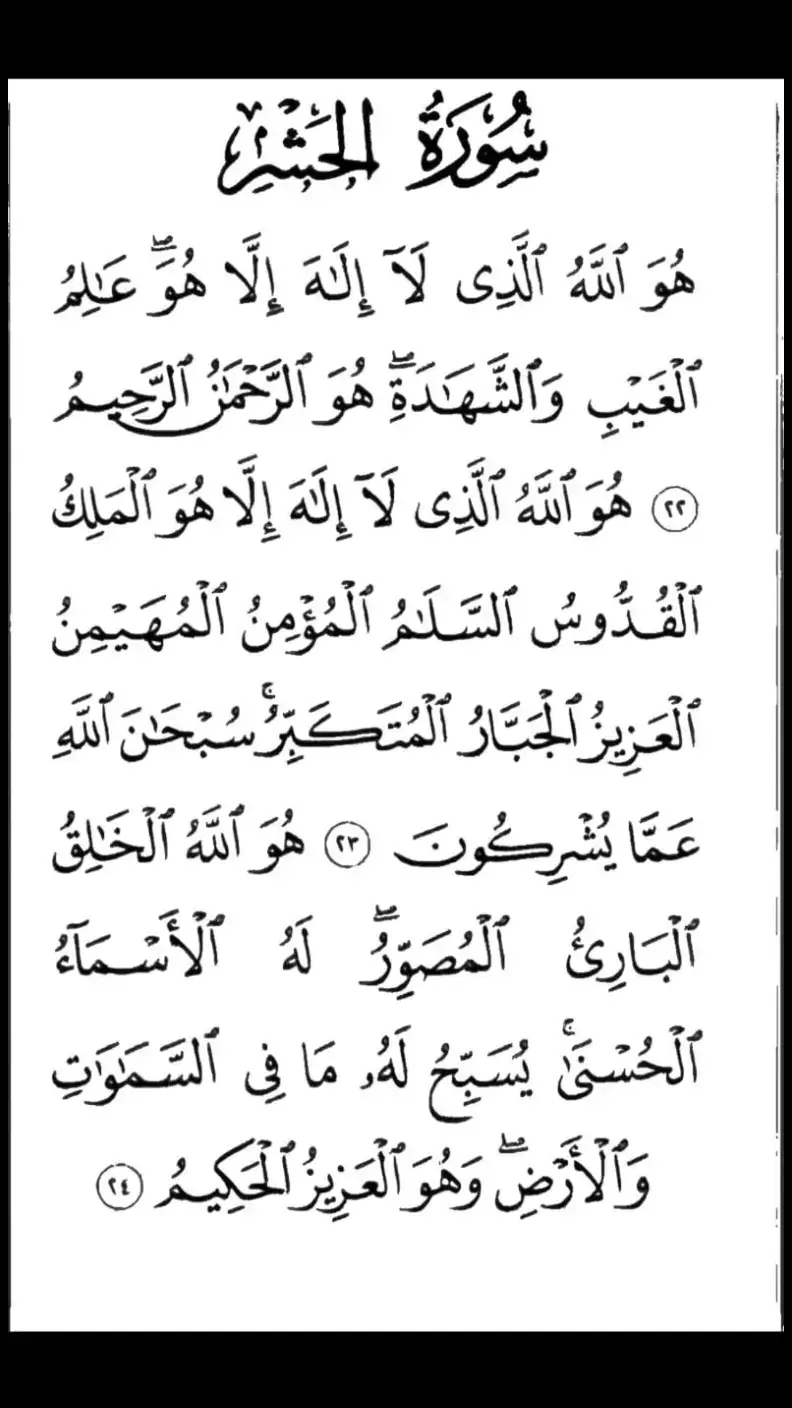 سُورَةُ الحَشْرِ
هُوَ ٱللَّهُ ٱلَّذِى لَآ إِلَٰهَ إِلَّا هُوَۖ عَٰلِمُ
ٱلْغَيْبِ وَٱلشَّهَٰدَةِۖ هُوَ ٱلرَّحْمَٰنُ ٱلرَّحِيمُ
٢٢ هُوَ ٱللَّهُ ٱلَّذِى لَآ إِلَٰهَ إِلَّا هُوَ ٱلْمَلِكُ
ٱلْقُدُّوسُ ٱلسَّلَٰمُ ٱلْمُؤْمِنُ ٱلْمُهَيْمِنُ
ٱلْعَزِيزُ ٱلْجَبَّارُ ٱلْمُتَكَبِّرُۚ سُبْحَٰنَ ٱللَّهِ
عَمَّا يُشْرِكُونَ ٢٣ هُوَ ٱللَّهُ ٱلْخَٰلِقُ
ٱلْبَارِئُ ٱلْمُصَوِّرُۖ لَهُ ٱلْأَسْمَآءُ
ٱلْحُسْنَىٰۚ يُسَبِّحُ لَهُۥ مَا فِى ٱلسَّمَٰوَٰتِ
وَٱلْأَرْضِۖ وَهُوَ ٱلْعَزِيزُ ٱلْحَكِيمُ ٢٤